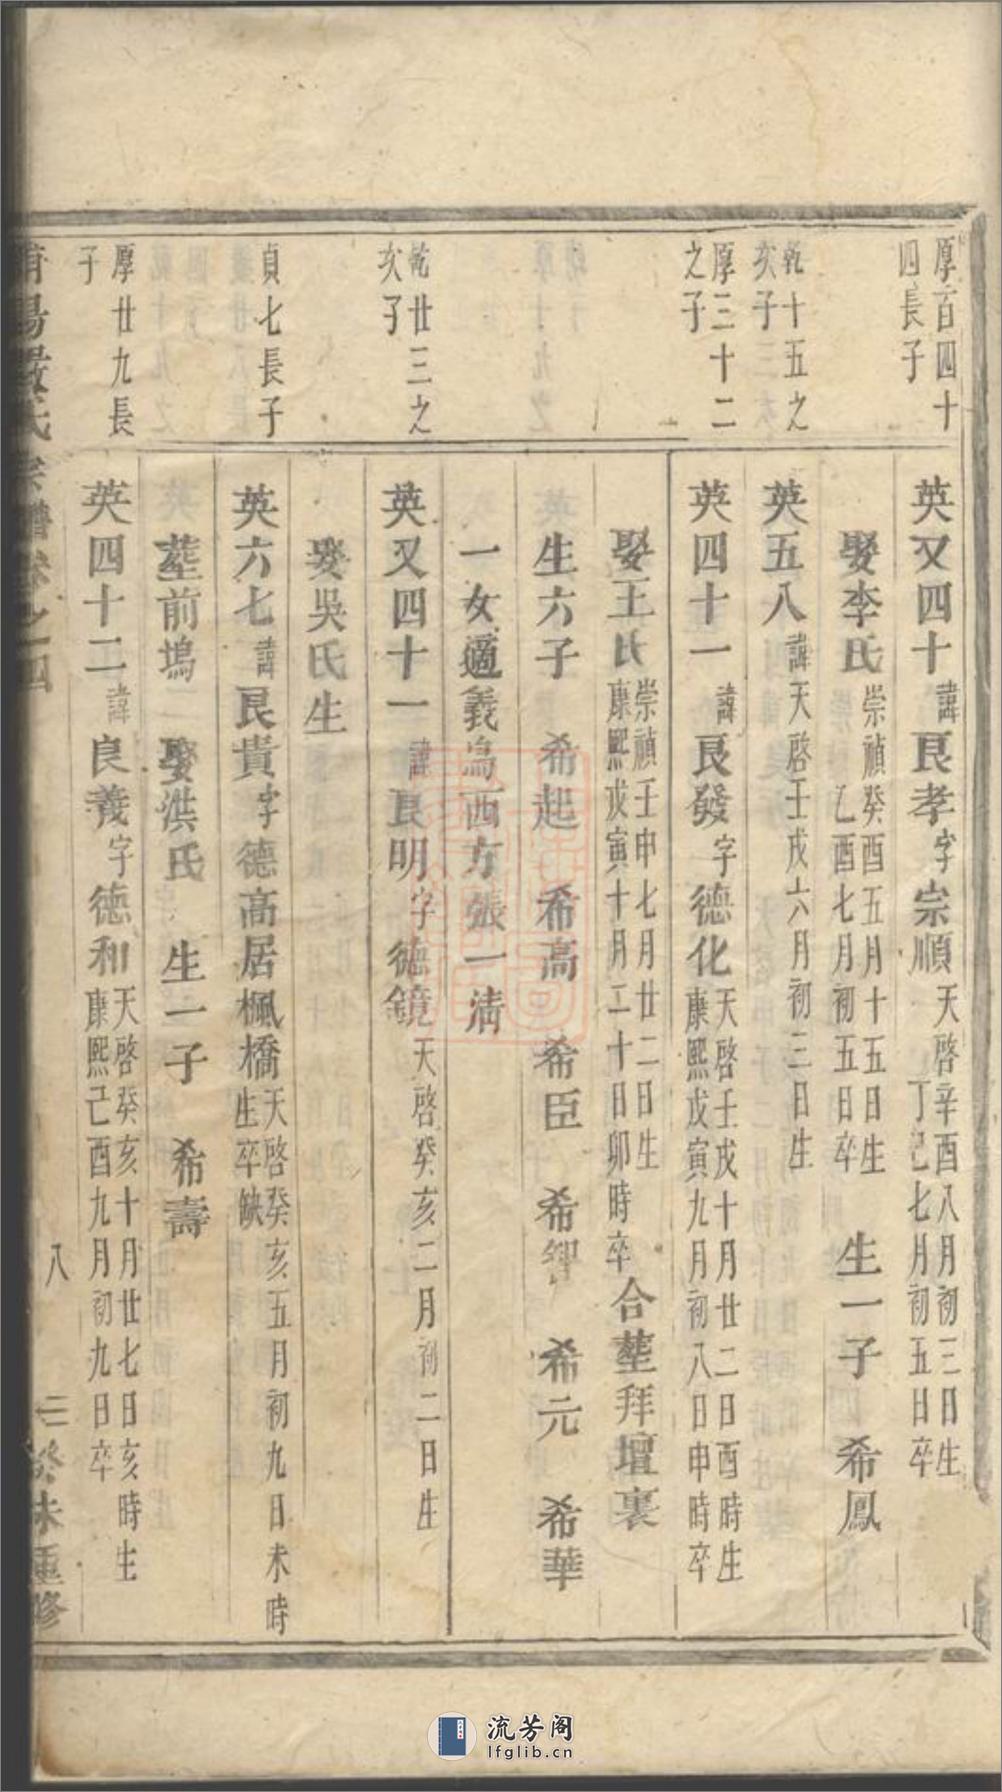 厚百四十
四長子
英又四十諱良孝字宗順天啓辛酉八月初三日生
丁巳七月初五日卒
娶李氏崇禎癸酉五月十五日生
乙酉七月初五日卒
生一子 希鳳
乾十五之
次子
英五八諱天啓壬戌六月初三日生
厚三十二
之子
英四十一諱良發字德化天啓壬戌十月廿二日酉時生
康熙戊寅九月初八日申時卒
娶王氏崇禎壬申七月廿二日生
康熙戊寅十月二十日卯時卒
合塟拜壇裏
生六子 希起 希高 希臣 希智 希元 希華
一女適義烏西方張一清
乾廿三之
次子
英又四十一諱良明字德鏡天啓癸亥二月初二日生
娶吳氏生
貞七長子
英六七諱良貴字德高居楓橋天啓癸亥五月初九日未時
生卒缺
塟前塢 娶洪氏 生一子 希壽
厚廿九長
子
英四十二諱良義字德和天啓癸亥十月廿七日亥時生
康熙己酉九月初九日卒
陽嚴氏宗譜卷之四
八
癸未重修
流芳阁
lfglib.cn